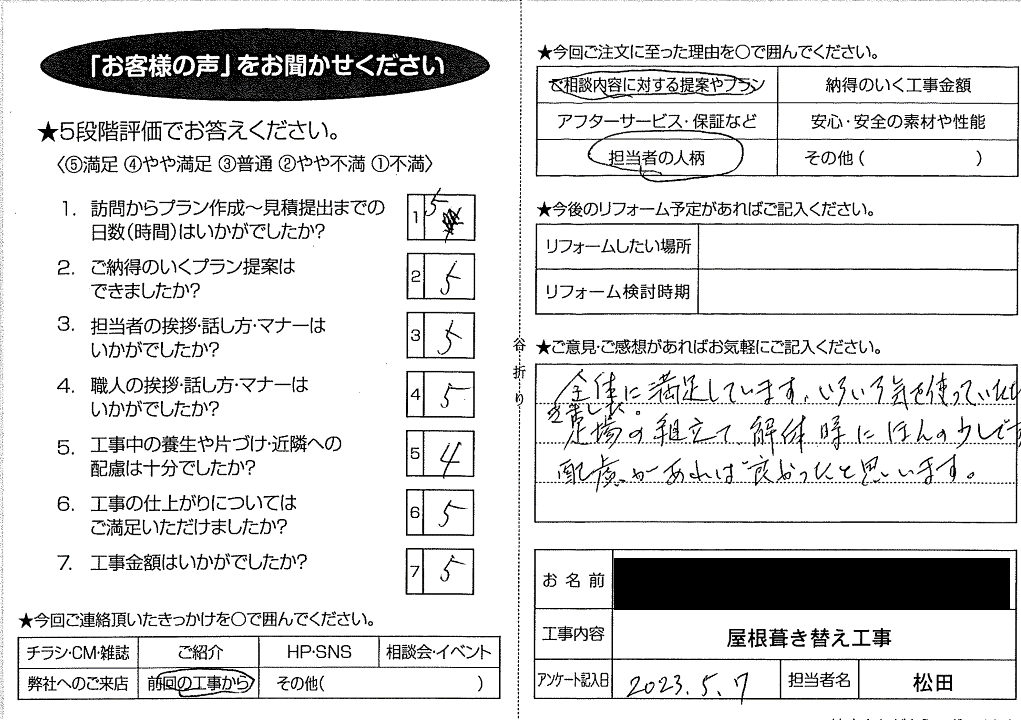 「お客様の声」をお聞かせください
★5段階評価でお答えください。
〈⑤満足 ④やや満足 ③普通 ②やや不満 ①不満〉
1. 訪問からプラン作成～見積提出までの
日数(時間)はいかがでしたか?
1 5
2. ご納得のいくプラン提案は
できましたか?
2 5
3. 担当者の挨拶・話し方・マナーは
いかがでしたか?
3 5
4. 職人の挨拶・話し方・マナーは
いかがでしたか?
4 5
5. 工事中の養生や片づけ・近隣への
配慮は十分でしたか?
5 4
6. 工事の仕上がりについては
ご満足いただけましたか?
6 5
7. 工事金額はいかがでしたか?
7 5
★今回ご連絡頂いたきっかけを○で囲んでください。
チラシ・CM・雑誌 ご紹介 HP・SNS 相談会・イベント
弊社へのご来店 前回の工事から その他( )
谷折り
★今回ご注文に至った理由を○で囲んでください。
ご相談内容に対する提案やプラン 納得のいく工事金額
アフターサービス・保証など 安心・安全の素材や性能
担当者の人柄 その他( )
★今後のリフォーム予定があればご記入ください。
リフォームしたい場所
リフォーム検討時期
★ご意見・ご感想があればお気軽にご記入ください。
全体に満足しています。いろいろ気を使っていただ
きました。
足場の組立て、解体時にほんの少しでも
配慮があれば良かったと思います。
お名前
工事内容 屋根葺き替え工事
アンケート記入日 2023.5.7 担当者名 松田